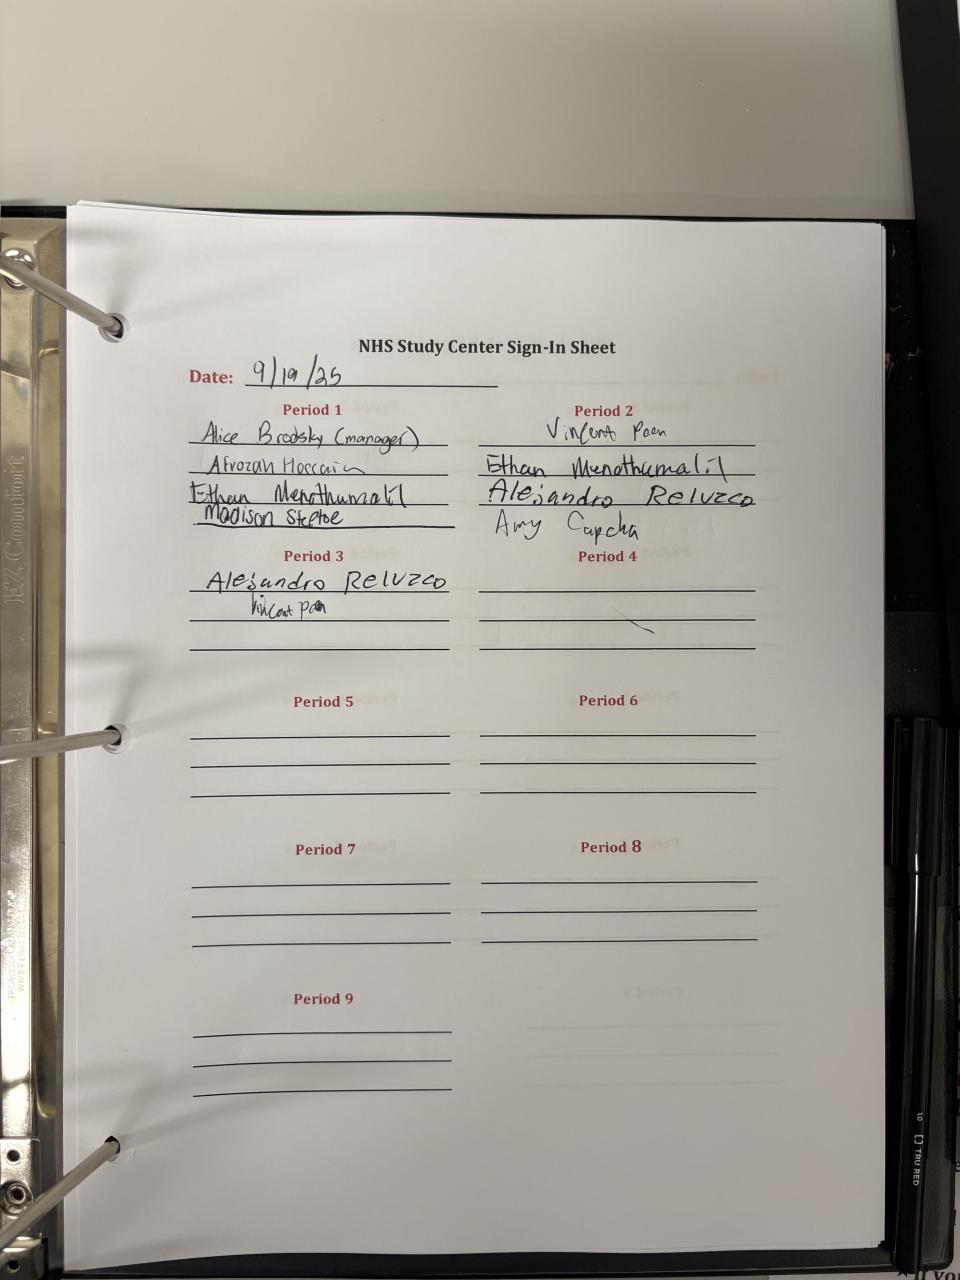 NHS Study Center Sign-In Sheet
Date: 9/19/25
Period 1
Alice Brodsky (manager)
Afrozah Hossain
Ethan Menothumalil
Madison Steptoe
Period 2
Vincent Poon
Ethan Menothumalil
Alejandro Reluzco
Amy Capcha
Period 3
Alejandro Reluzco
Vincent Poon
Period 4
Period 5
Period 6
Period 7
Period 8
Period 9
EZ Comfort
1.0 [ ] TRU RED